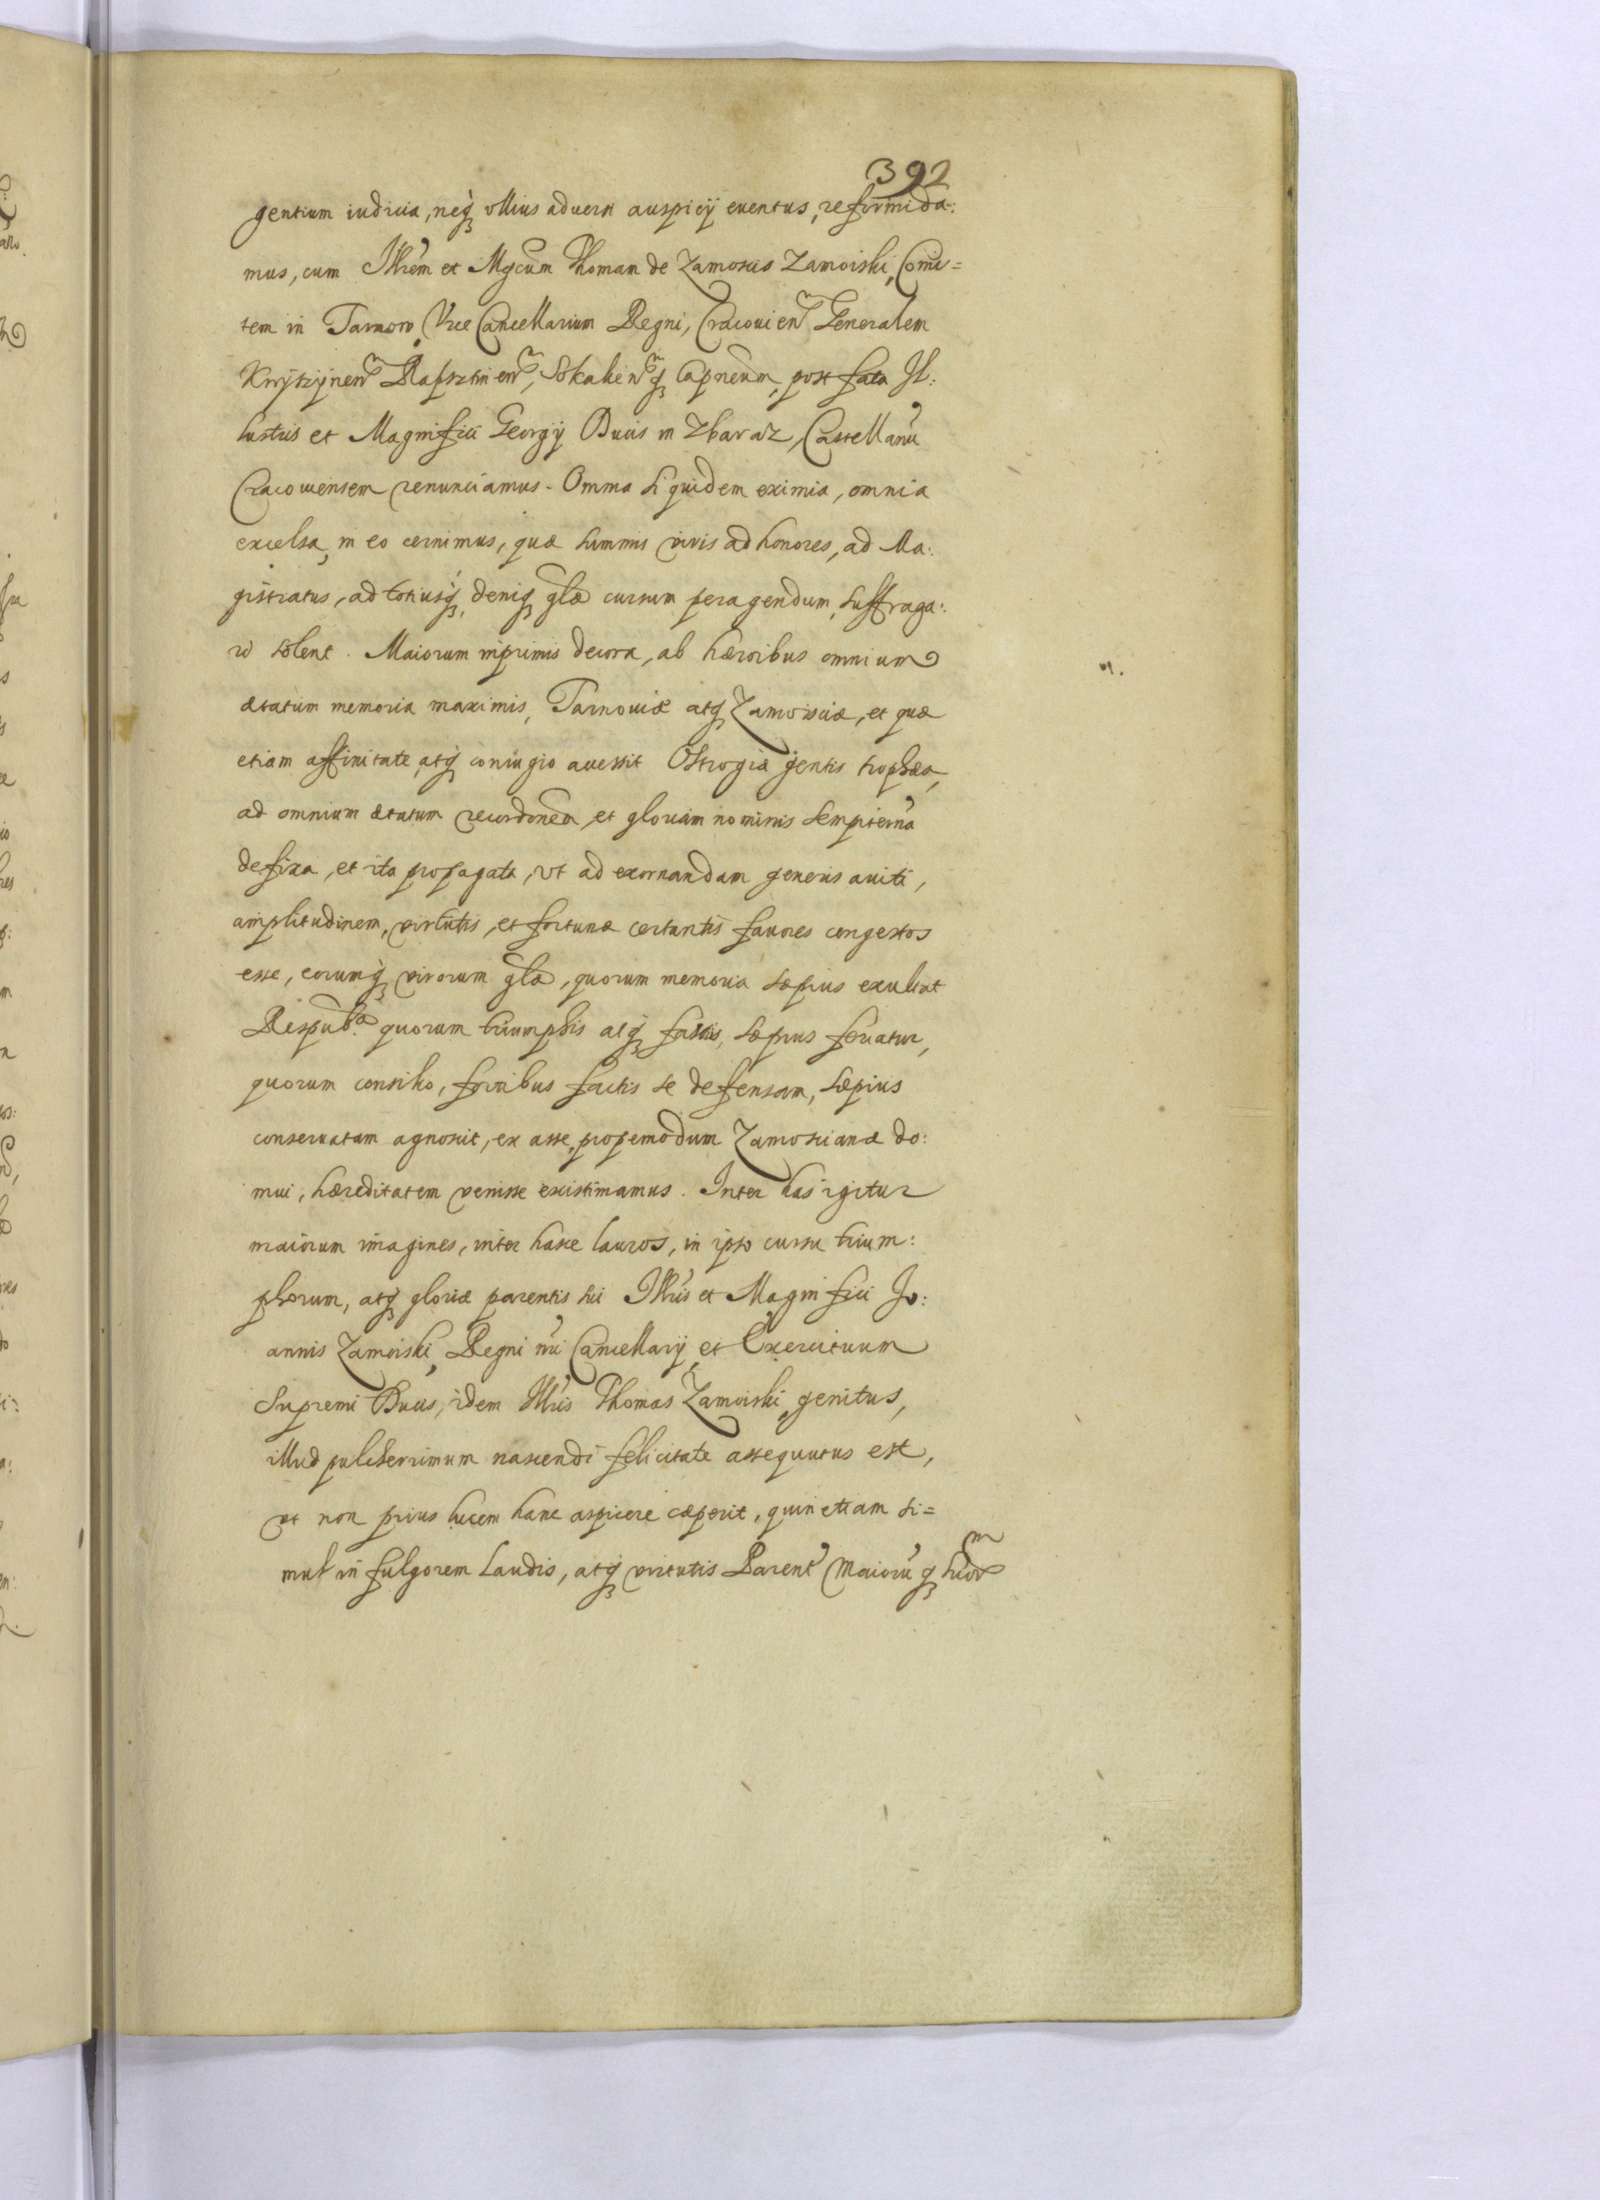 392
gentium iudicia, neq₃ ullius aduersi auspicij euentus, reformida:
mus, cum Illrem et Mgcum Thomam de Zamoscis Zamoiski, Comi=
tem in Tarnow, Vice Cancellarium Regni, Cracouien Generalem
Knyszynen Rapsztinen, Sokalien q₃ Capneum, post fata Il:
lustris et Magnifici Georgij Ducis in Zbaraz, Castellanu
Cracouiensem renunciamus. Omnia siquidem eximia, omnia
excelsa, in eo cernimus, quæ summis viris ad honores, ad Ma:
gistratus, ad totiusq₃, deniq₃ glæ cursum peragendum, suffraga:
ri solent. Maiorum inprimis decora, ab hæroibus omnium
ætatum memoria maximis, Tarnouiæ atq₃ Zamoisciæ, et quæ
etiam affinitate, atq₃ coniugio accessit Ostrogiæ gentis trophæa,
ad omnium ætatum recordonem, et gloriam nominis sempiterna
defixa, et ita propagata, vt ad exornandam generis auiti,
amplitudinem, virtutis, et fortunæ certantis fauores congestos
esse, eorumq₃ virorum glæ, quorum memoria sæpius exultat
Respubca quorum triumphis atq₃ fastis, sæpius feriatur,
quorum consilio, fortibus factis se defensam, sæpius
conseruatam agnoscit, ex asse, propemodum Zamoscianæ do:
mui, hæreditatem venisse existimamus. Inter has igitur
maiorum imagines, inter hasce lauros, in ipso cursu trium:
phorum, atq₃ gloriæ parentis sui Illris et Magnifici Jo:
annis Zamoiski, Regni nri Cancellarij, et Exercituum
Supremi Ducis, idem Illris Thomas Zamoiski, genitus,
illud pulcherrimum nascendi felicitate assequutus est,
vt non prius lucem hanc aspicere cæperit, quin etiam si=
mul in fulgorem laudis, atq₃ virtutis Parent Maioru q₃ suor